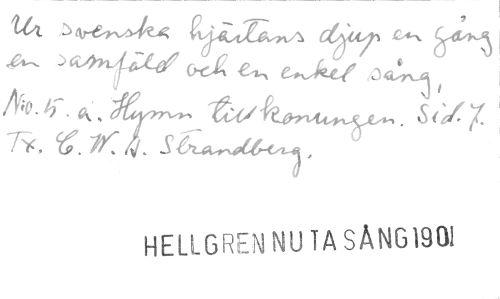 Ur svenska hjärtans djup en gång
en samfäld och en enkel sång,
No. 5. a. Hymn till konungen. Sid. 7.
Tx. C. W. A. Strandberg.
HELLGREN NUTA SÅNG 1901